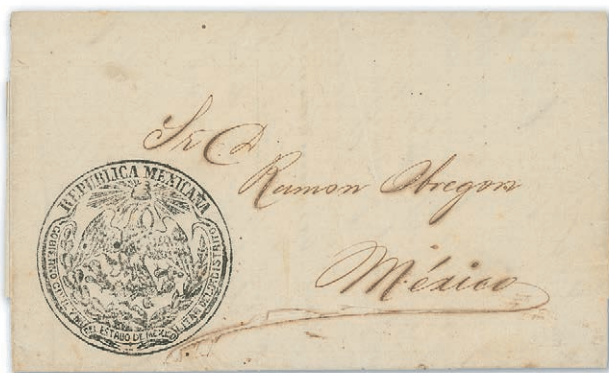 Sr C. D.
Ramon Obregon
México
REPUBLICA MEXICANA
GOBIERNO
ESTADO DE MEX
DISTRITO